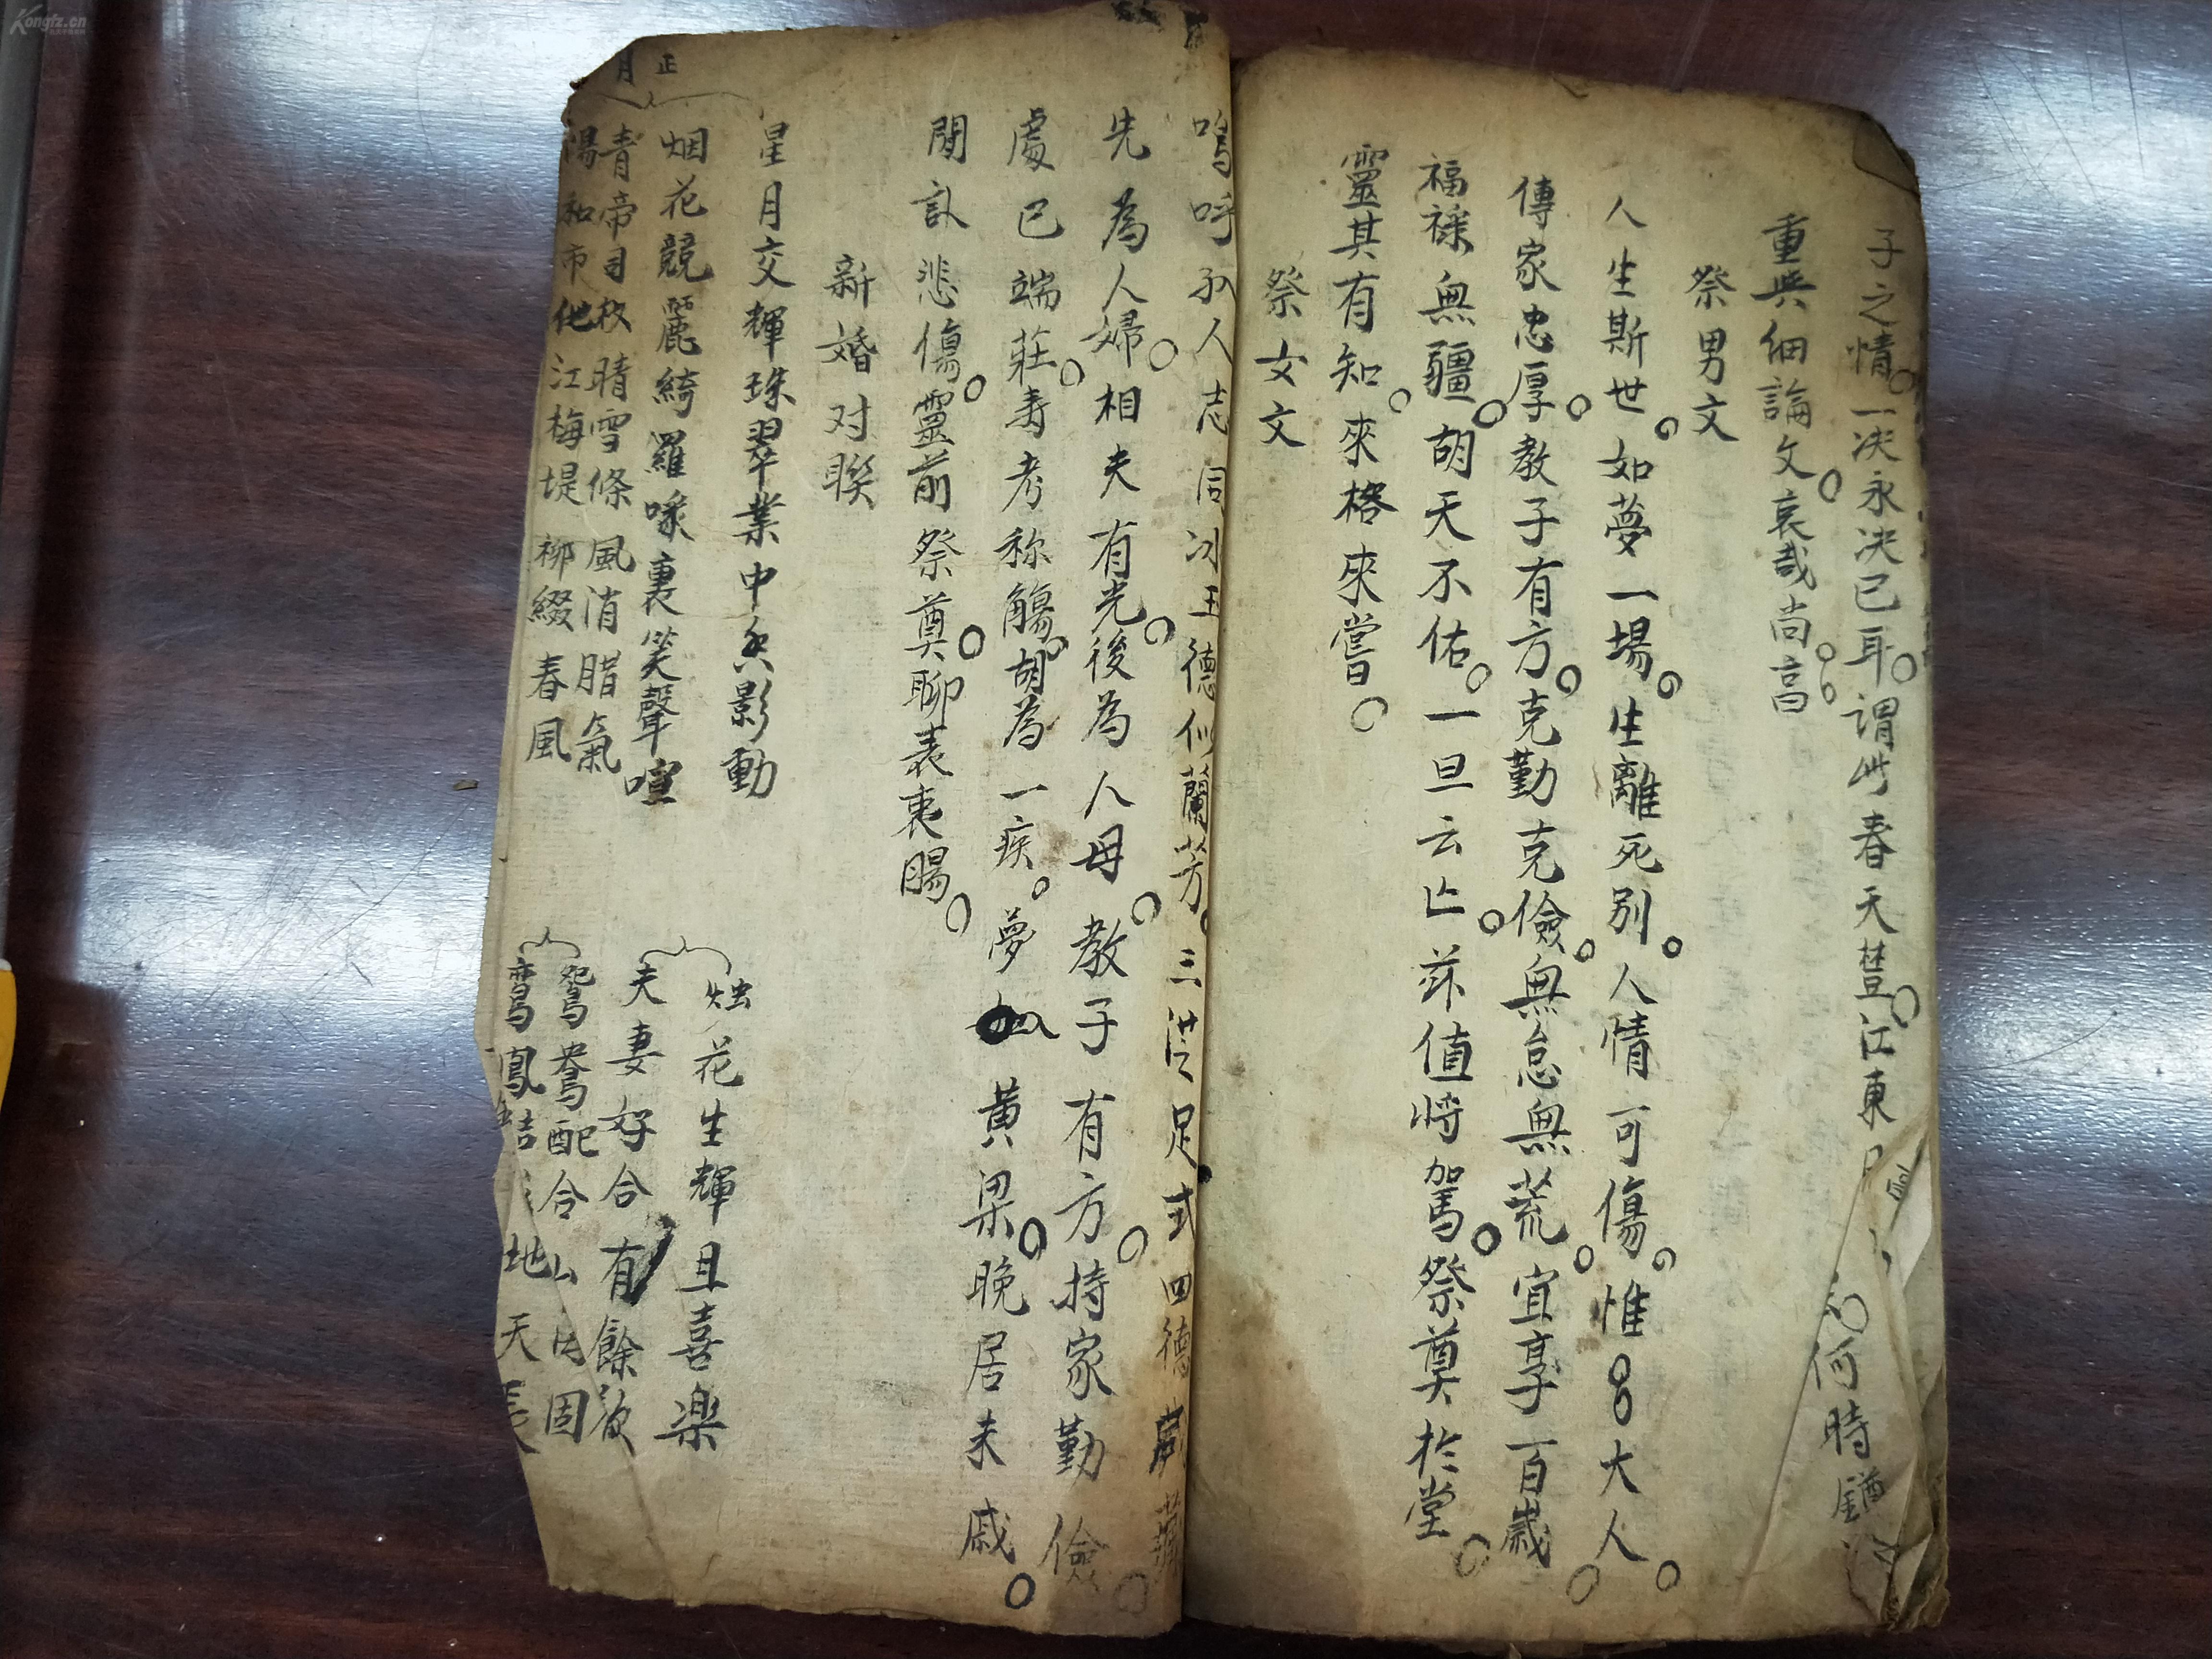 子之情。一决永决已耳。謂此春天楚。江東
何時
重與細論文。哀哉尚。享
祭男文
人生斯世。如夢一場。生離死別。人情可傷。惟呂大人。
傳家忠厚。教子有方。克勤克儉。無怠無荒。宜享百歲。
福祿無疆。胡天不佑。一旦云亡。茲值將駕。祭奠於堂。
靈其有知。來格來嘗。
祭女文
嗚呼孙人志同冰玉德似蘭芳。三洪足式四德
先為人婦。相夫有光。後為人母。教子有方。持家勤儉。
處已端莊。寿考称觴。胡為一疾。夢似黃梁。晚居未戚。
聞訃悲傷。靈前祭奠。聊表衷腸。
新婚对聯
星月交輝珠翠業中魚影動
烟花競麗綺羅喙裏笑聲喧
正月
青帝司权晴雪條風消腊氣
陽和布化江梅堤柳綴春風
烛花生輝且喜樂
夫妻好合有餘歡
鴛鴦配合山固
鸞鳳結地天長
Kongfz.cn